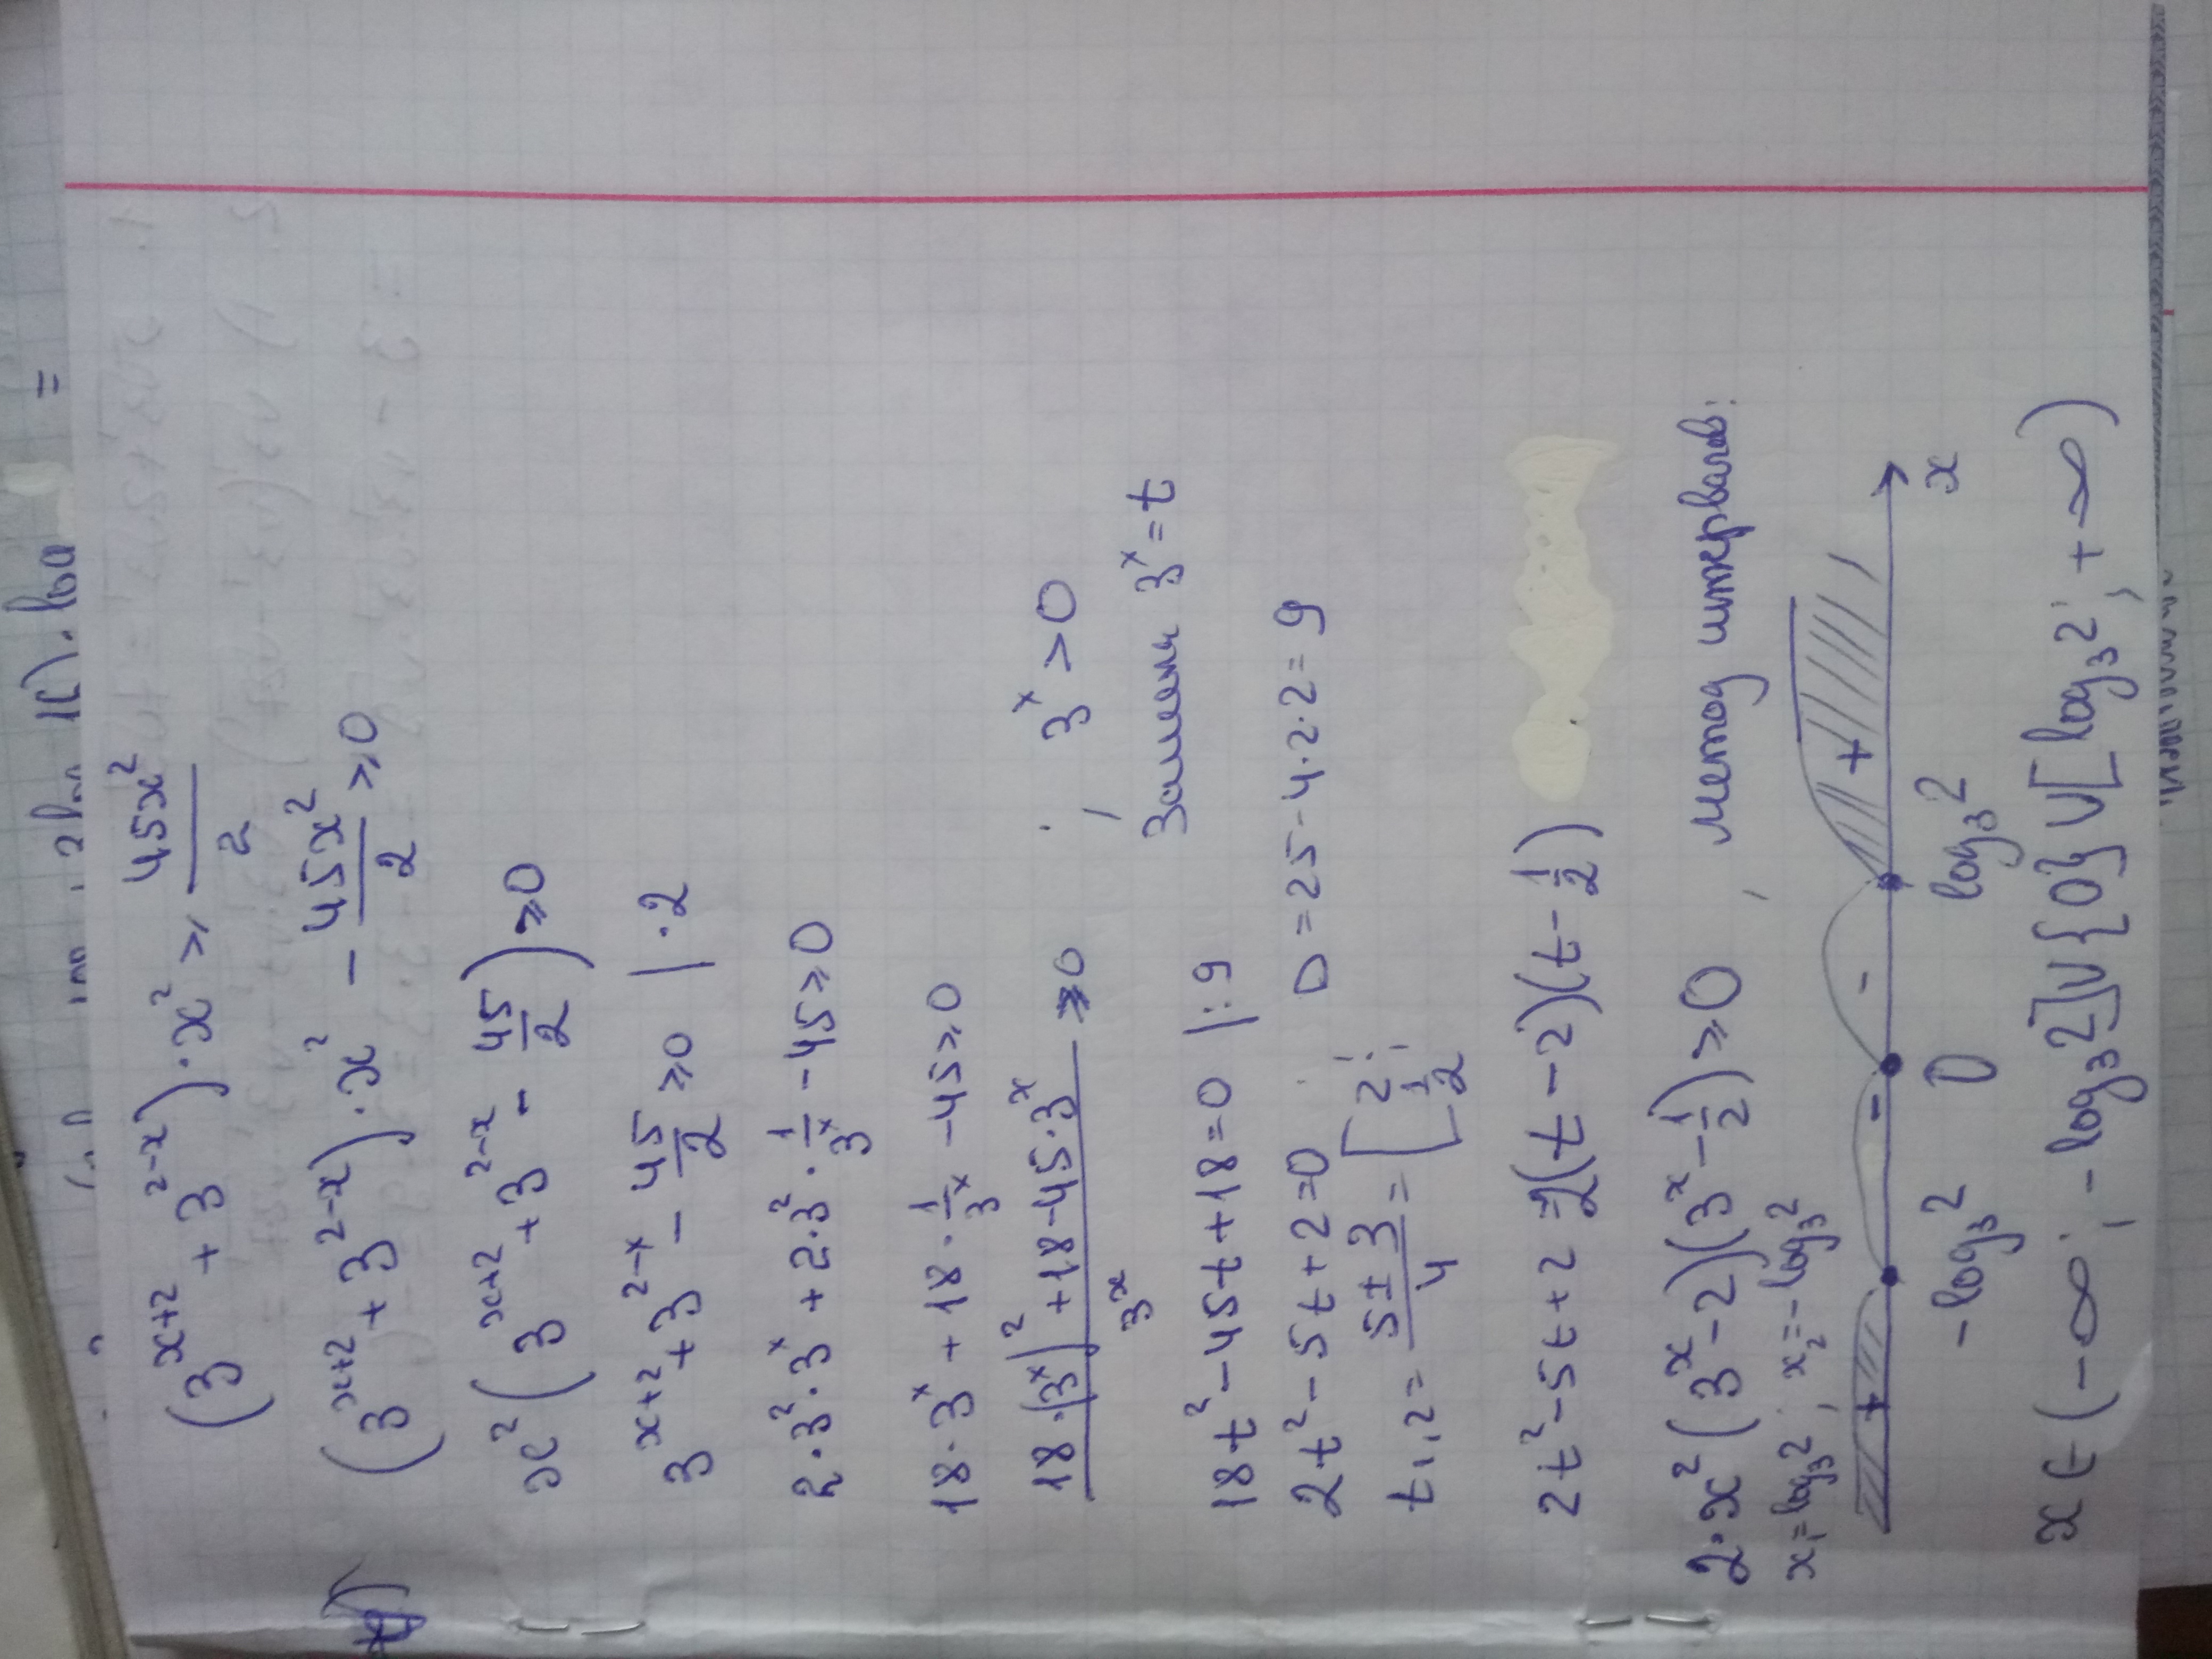 (3^{x+2} + 3^{2-x}) · x² ≥ 45x²/2
4) (3^{x+2} + 3^{2-x}) · x² - 45x²/2 ≥ 0
x² (3^{x+2} + 3^{2-x} - 45/2) ≥ 0
3^{x+2} + 3^{2-x} - 45/2 ≥ 0 | · 2
2 · 3² · 3^x + 2 · 3² · 1/3^x - 45 ≥ 0
18 · 3^x + 18 · 1/3^x - 45 ≥ 0
(18 · (3^x)² + 18 - 45 · 3^x)/3^x ≥ 0 ; 3^x > 0
Замена 3^x = t
18t² - 45t + 18 = 0 | : 9
2t² - 5t + 2 = 0 D = 25 - 4 · 2 · 2 = 9
t₁,₂ = (5 ± 3)/4 = [ 2; 1/2;
2t² - 5t + 2 = 2(t - 2)(t - 1/2)
2 · x² (3^x - 2)(3^x - 1/2) ≥ 0 , метод интервалов:
x₁ = log₃2 ; x₂ = -log₃2
+ - - +
-log₃2 0 log₃2 x
x ∈ (-∞; -log₃2] ∪ {0} ∪ [log₃2; +∞)